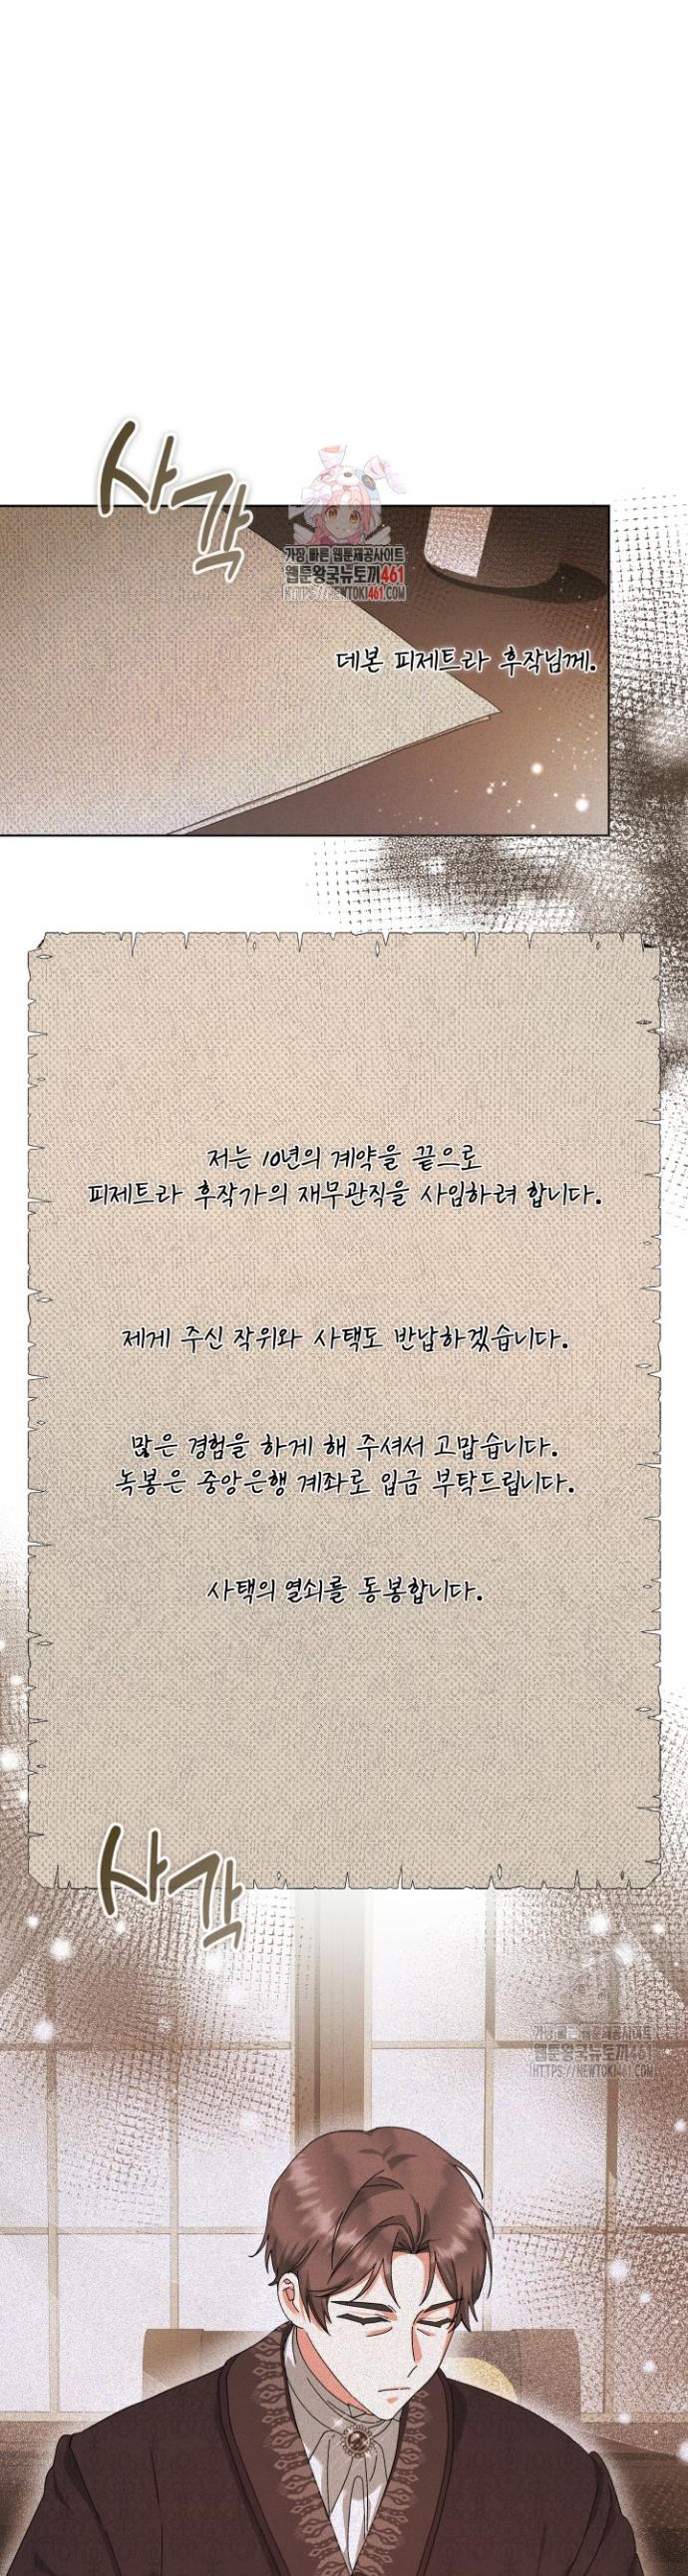 사각
가장 빠른 웹툰제공사이트
웹툰왕국뉴토끼461
HTTPS://NEWTOKI461.COM
데본 피제트라 후작님께.
저는 10년의 계약을 끝으로
피제트라 후작가의 재무관직을 사임하려 합니다.
제게 주신 작위와 사택도 반납하겠습니다.
많은 경험을 하게 해 주셔서 고맙습니다.
녹봉은 중앙은행 계좌로 입금 부탁드립니다.
사택의 열쇠를 동봉합니다.
사각
가장 빠른 웹툰제공사이트
웹툰왕국뉴토끼461
HTTPS://NEWTOKI461.COM